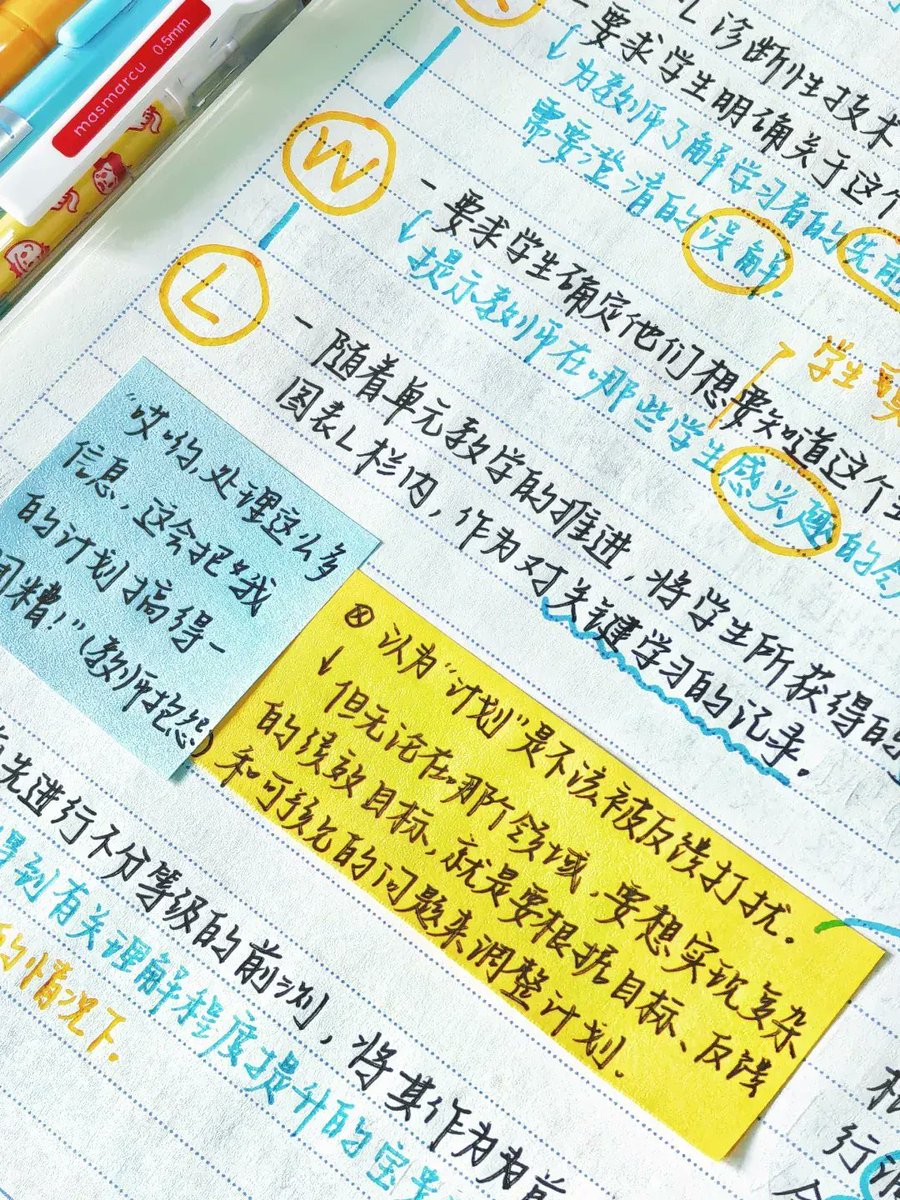 masmarcu 0.5mm
L 诊断性技术
一要求学生明确关于这个
↓为教师了解学习者的先前
需要澄清的误解.
W
一要求学生确定他们想要知道这个
↓提示教师在哪些学生感兴趣的
学生
L
一随着单元教学的推进,将学生所获得的
图表L栏内,作为对关键学习的记录.
"哎哟,处理这么多
信息,这会把我
的计划搞得一
团糟!"(教师抱怨)
⊗认为"计划"是不该被反馈打扰。
↓但无论在哪个领域,要想实现复杂
的绩效目标,就是要根据目标、反馈
和可预见的问题来调整计划.
先进行不分等级的前测,将其作为前
得到有关理解程度提升的宝贵
的情况下.
行